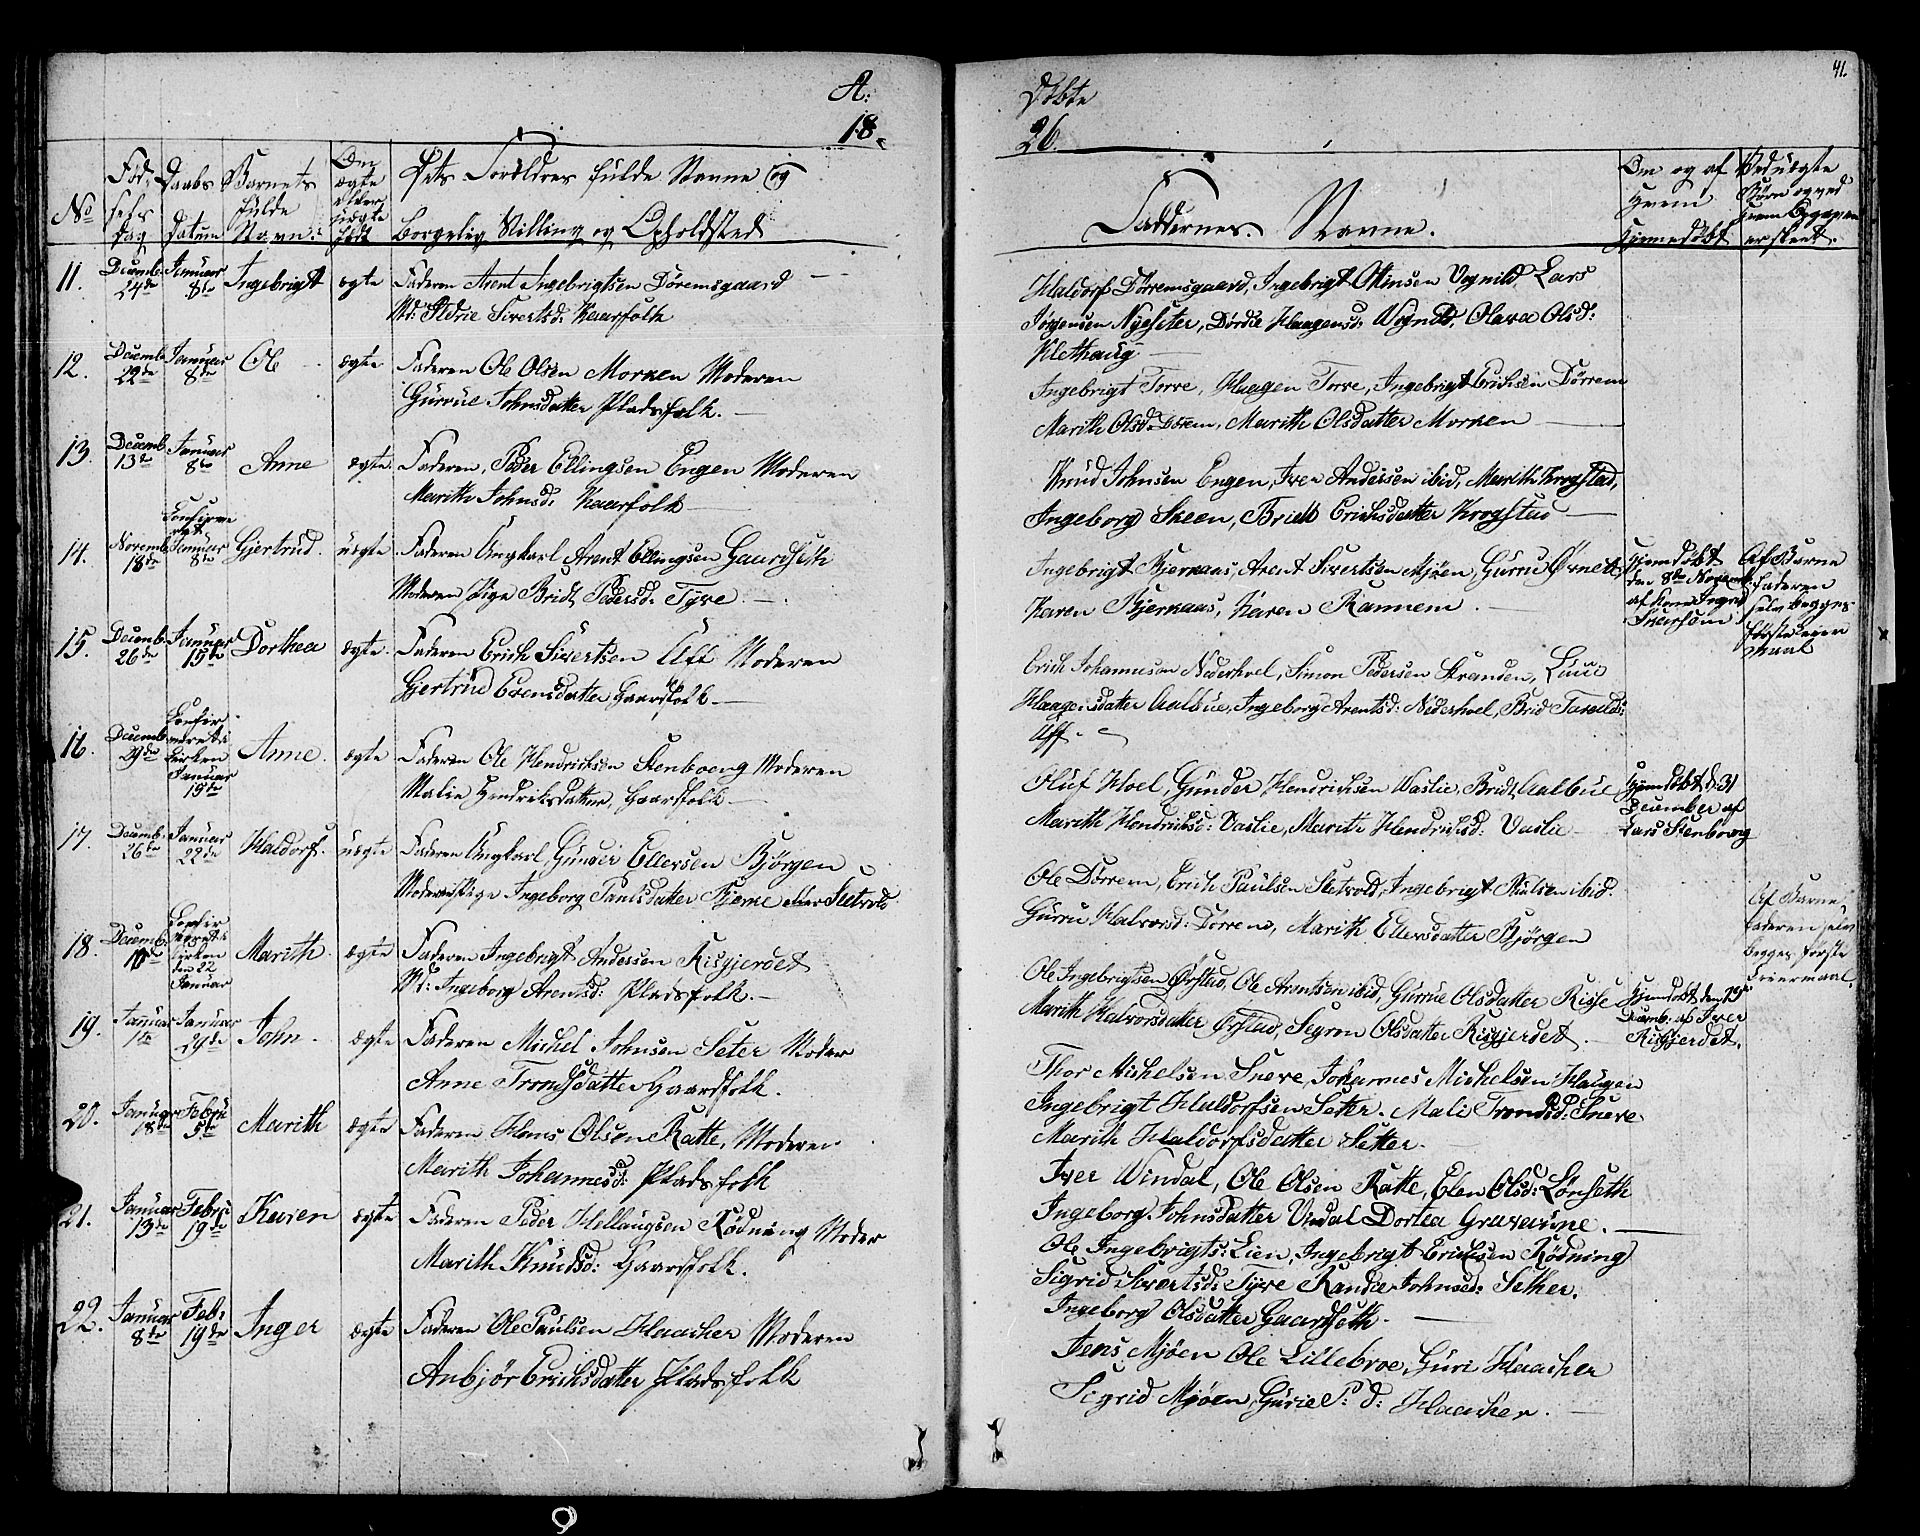 A:
18
Døbte
26.
41.
No
Fødselsdag
Daabs Datum
Barnets fulde Navn:
Om ægte eller uægte født
Dets Forældres fulde Navne og
Borgerlig Stilling og Opholdsted
Faddernes Navne.
Om og af Hvem Hjemmedøbt
Ved uægte Børn og ved hvem Opgaven er skeet.
11. Decemb. 24de Januar 8de Ingebrigt ægte Faderen Arent Ingebrigtsen Dørremsgaard
Md: Sivertsd: Gaarfolk
Haldorf Dørremsgaard, Ingebrigt Vognild, Lars
Jørgensen Nyesæter, Dordie Haagensd: Vognild, Olava Olsd:
Klethaug
12. Decemb. 22de Januar 8de Ole ægte Faderen Ole Olsen Morken Moderen
Gurrue Johnsdatter Pladsfolk.
Ingebrigt Torve, Haagen Torve, Ingebrigt Erichsen Dørrem
Marith Olsd: Dørrem, Marith Olsdatter Morken
13. Decemb. 13de Januar 8de Anne ægte Faderen, Peder Ellingsen Engen Moderen
Marith Johnsd: Gaarfolk
Knud Johnsen Engen, Iver Andersen ibid, Marith Krogstad,
Ingeborg Skeen, Bridt Erichsdatter Krogstad
14. Novemb. 18de Confirmeret Januar 8de Gjertrud. uægte Faderen Ungkarl Arent Ellingsen Gaardseth
Moderen Pige Bridt Pedersd: Tyve.
Ingebrigt Bjerkaas, Arent Sivertsen Mjøen, Gurrue Ørnet
Karen Bjerkaas, Karen Rannem
Hjemdøbt den 8de Novemb. af Kone Ingrid
Af Barnefaderen selv begges første Leiermaal
15. Decemb. 26de Januar 15de Dorthea ægte. Faderen Erich Sivertsen Uff Moderen
Gjertrud Evensdatter Gaardfolk
Erich Johannesen Nederhoel, Simon Pedersen Stranden,
Haagensdatter Aalbue, Ingeborg Arentsd: Nederhoel, Brid
Uff.
16. Decemb. 29de Confirmeret i Kirken Januar 15de Anne. ægte Faderen Ole Hendrichsen Stenboeng Moderen
Malie Hendriksdatter, Gaardfolk
Oluf Hoel, Gunder Hendrichsen Vaslie, Bridt Aalbue
Marith Hendrichsd: Vaslie, Marith Hendrichsd: Vaslie
Hjemdøbt d. 31 December af Lars Stenboeng
17. Decemb. 26de Januar 22de Haldorf. uægte Faderen Ungkarl, Gunder Ellevsen Bjørgen
Moderen Pige Ingeborg Paulsdatter Bjerne eller Sletvold
Ole Dørrem, Erich Paulsen Sletvold, Ingebrigt ibid.
Gurru Halvorsd: Dørrem, Marith Ellevsdatter Bjørgen
Af Barnefaderen selv begges første Leiermaal.
18. Decemb. 10de Confirmeret i Kirken den 22 Januar Marith ægte Faderen Ingebrigt Andersen Risgjerdet
Md: Ingeborg Arentsd: Pladsfolk.
Ole Ingebrigtsen Ørstad, Ole Arentsen ibid, Gurrue Olsdatter Risse
Marith Halvorsdatter Ørstad, Segron Olsdatter Risgjerdet.
Hjemdøbt den 19de Decemb. af Iver Risgjerdet.
19. Januar 1te Januar 29de John. ægte Faderen Michel Johnsen Seter Moder
Anne Trondsdatter Gaardfolk.
Thor Michelsen Sneve, Johannes Michelsen Haugen
Ingebrigt Haldorfsen Setter. Mali Trondsd: Sneve
Marith Haldorfsdatter Setter.
20. Januar 18de Febru 5te Marith ægte Faderen Hans Olsen Ratte, Moderen
Marith Johannesd: Pladsfolk
Iver Vindal, Ole Olsen Ratte, Elen Olsd: Lønseth
Ingeborg Johnsdatter Vindal Dortea Gravaune.
21. Januar 13de Febru 19de Karen ægte Faderen Peder Hellaugsen Rødning Moder
Marith Knudsd: Gaardfolk.
Ole Ingebrigts: Lien, Ingebrigt Erichsen Rødning
Sigrid Sivertsd: Tyve Randie Johnsd: Sether.
Ingeborg Olsdatter Gaardseth.
22. Januar 8de Feb: 19de Inger ægte Faderen Ole Paulsen Haacker Moderen
Anbjør Erichsdatter Pladsfolk
Jens Mjøen Ole Lillebroe, Guri Haacker
Sigrid Mjøen, Gurie P: d: Haacker.
9